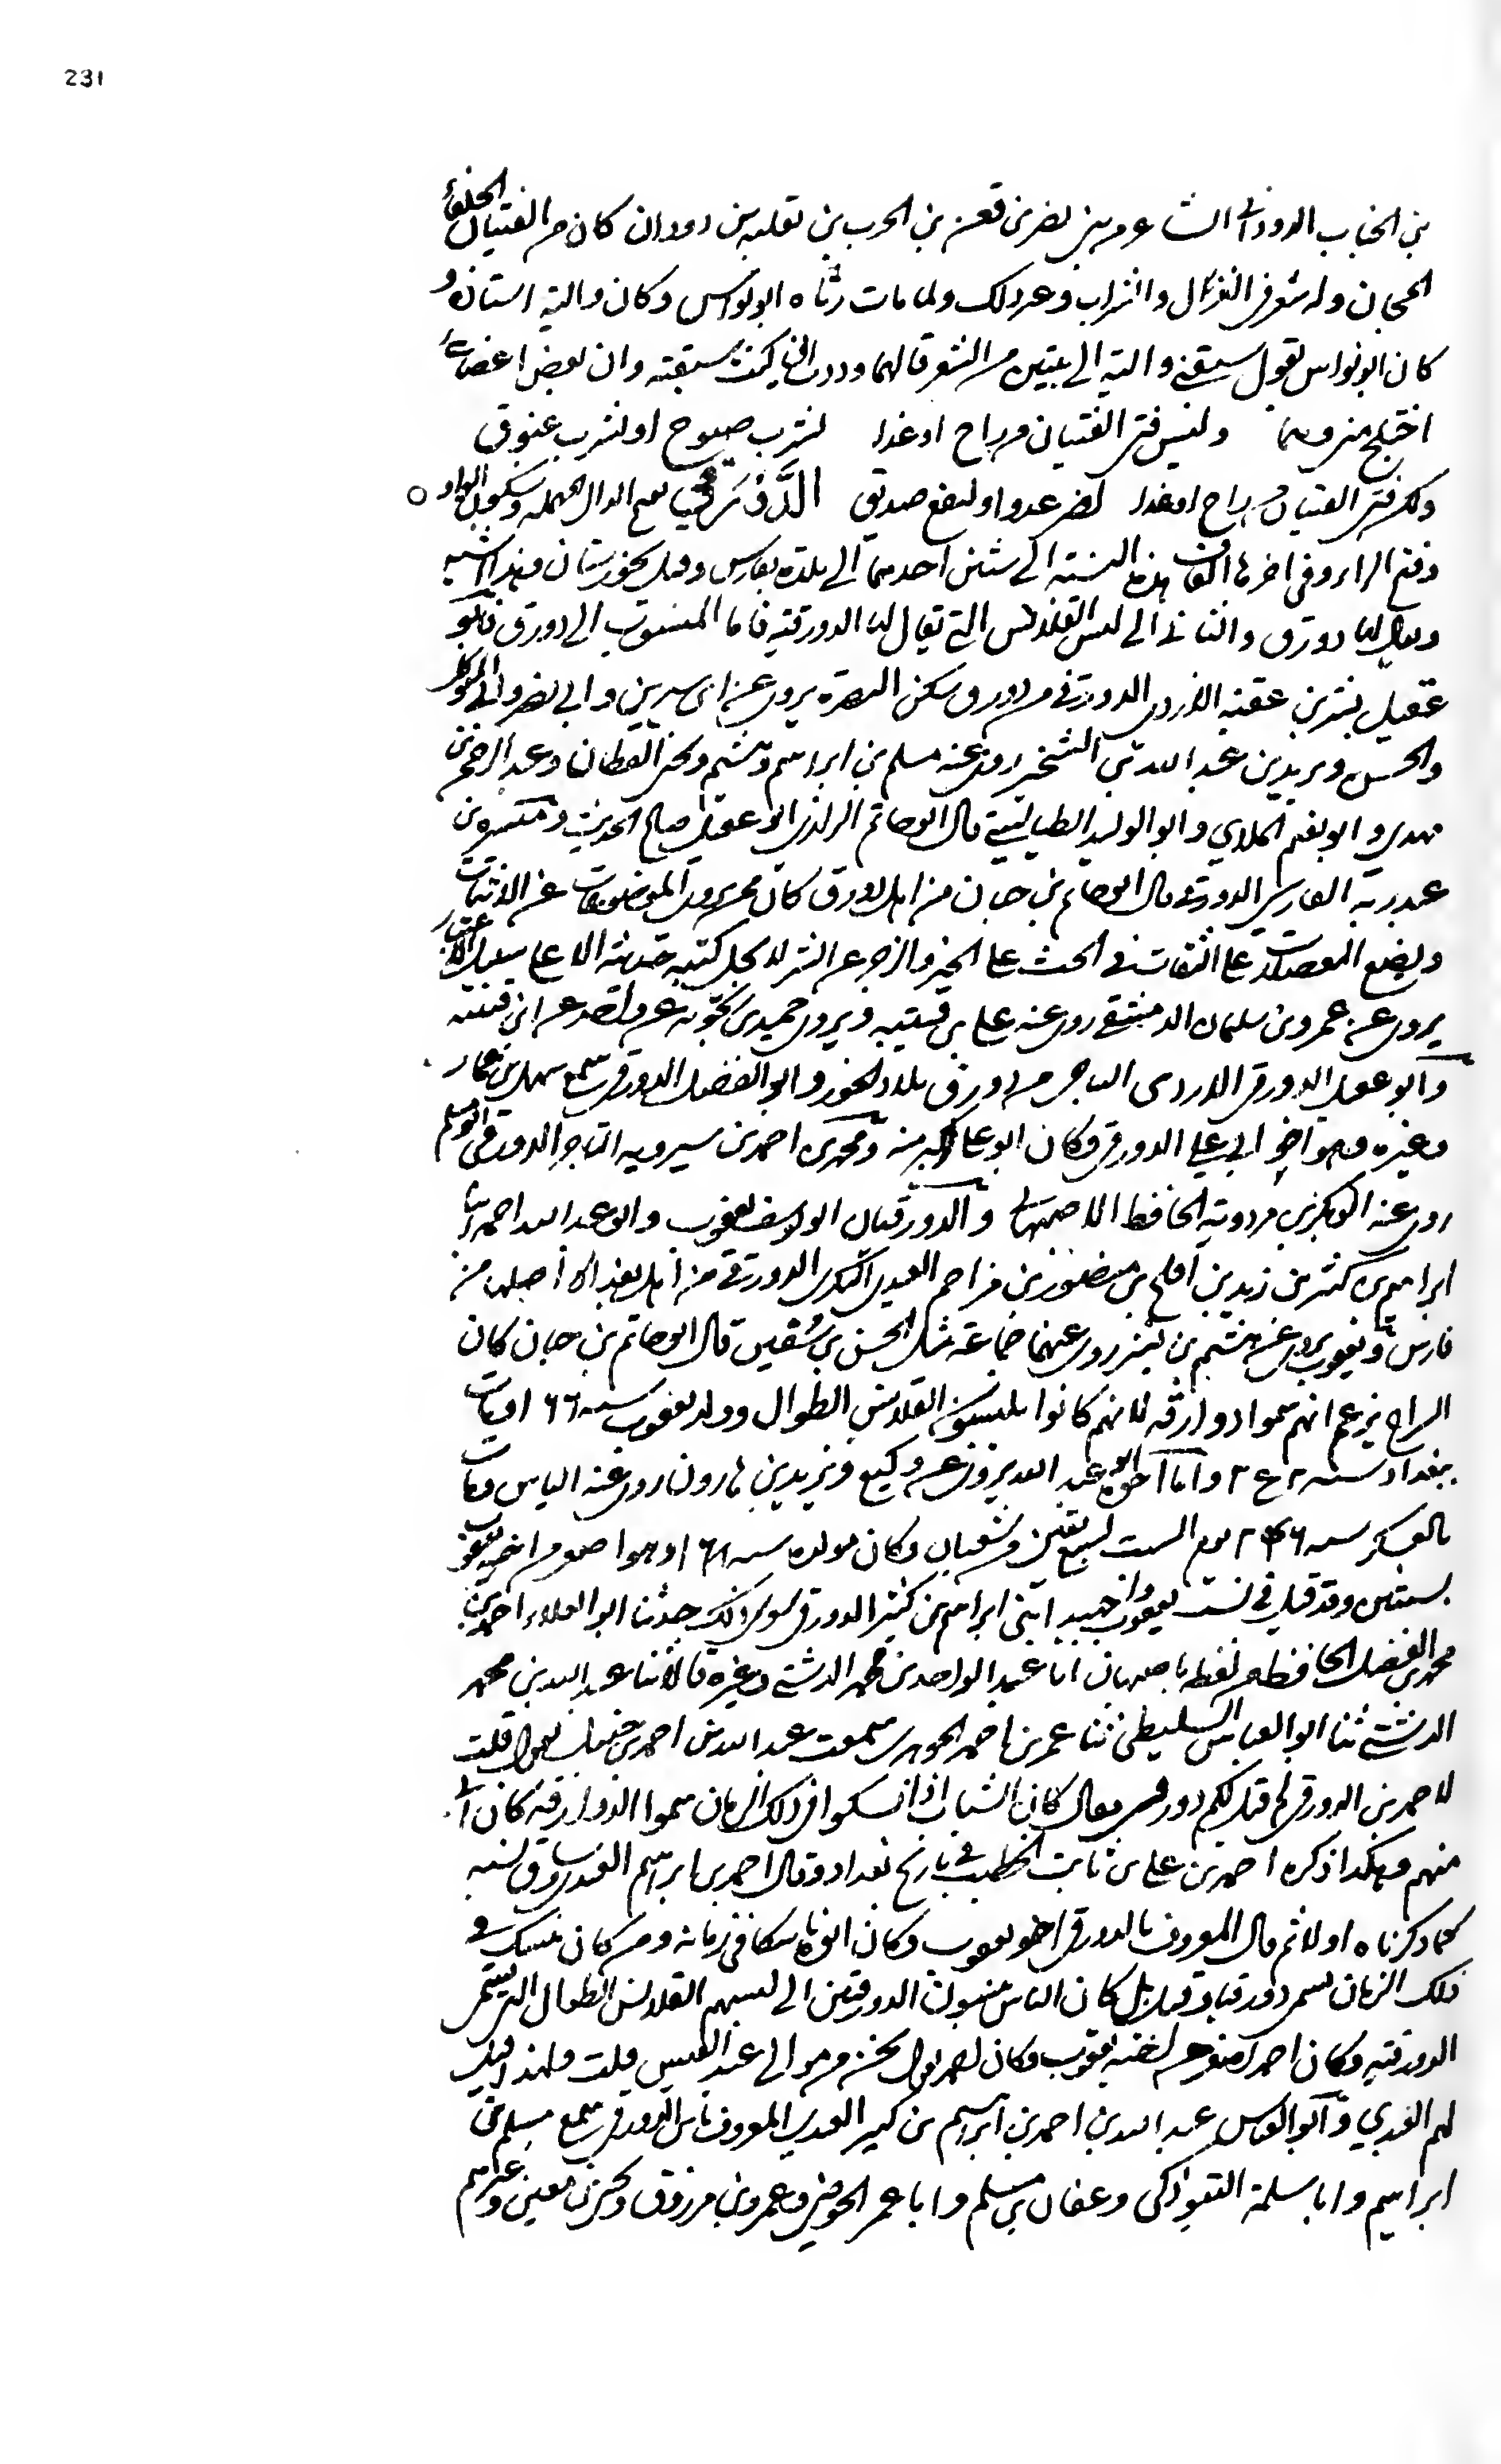 231
بن الحباب الدودانى الشاعر من بنى نصر بن قعين بن الحرب بن ثعلبه بن دودان كان من الفتيان الخلعاء
المجان وله شعر فى الغزل والشراب وغير ذلك ولما مات رثاه ابو نواس وكان والبة استاذه و
كان ابو نواس يقول سبقنى والبة الى بيتين من الشعر قالهما وددت انى كنت سبقته وان بعض اعضائى
اختلج منى وهما وليس فتى الفتيان من راح او غدا لشرب صبوح او لشرب غبوق
ولكن فتى الفتيان من راح او غدا لضر عدو او لنفع صديق الدَّوْرَقى بفتح الدال المهمله وسكون الواو
وفتح الراء وفى اخرها القاف هذه النسبة الى شيئين احدهما الى بلدة بفارس وقيل بخوزستان وهذا اشبه
ويقال لها دورق والثانى الى لبس القلانس التى يقال لها الدورقية فاما المنسوب الى دورق فابو
عقيل بشر بن عقبه الازدى الدورقى من دورق سكن البصرة يروى عن ابن سيرين وابى نضره وابى المتوكل
والحسن ويزيد بن عبد الله بن الشخير روى عنه مسلم بن ابراهيم وهشيم ويحيى القطان وعبد الرحمن بن
مهدى وابو نعيم الملاي وابو الوليد الطيالسى قال ابو حاتم الرازى ابو عقيل صالح الحديث وميسره بن
عبد ربه الفارسى الدورقى قال ابو حاتم بن حبان من اهل دورق كان ممن يروى الموضوعات عن الاثبات
ويضع المعضلات على الثقات فى الحث على الخير والزجر عن الشر لا يحل كتبه حديثه الا على سبيل الاعتبار
يروى عن عمر بن سليمان الدمشقى روى عنه على بن قتيبه ويروى حميد بن زنجويه عن واحد عن ابن قتيبه
وابو عقيل الدورقى الازدى التاجر من دورق بلاد الخوز وابو الفضل الدورقى سمع سهل بن عمار
وغيره وهو اخو ابى على الدورقى وكان ابو على اكبر منه ومحمد بن احمد بن سيرويه التاجر الدورقى ابو مسلم
روى عنه ابو بكر بن مردويه الحافظ الاصبهانى والدورقيان ابو يوسف يعقوب وابو عبد الله احمد ابنا
ابراهيم بن كثير بن زيد بن افلح بن منصور بن مزاحم العبدى النكرى الدورقى من اهل بغداد اصلهما من
فارس ويعقوب يروى عن هشيم بن بشير روى عنهما جماعة مثل الحسن بن سفين قال ابو حاتم بن حبان كان
السراج يزعم انهم سموا دوارقه لانهم كانوا يلبسون القلانس الطوال وولد يعقوب سنه ١٦٦ ومات
ببغداد سنه ٢ع٢ واما اخوه ابو عبد الله يروى عن وكيع ويزيد بن هارون روى عنه الناس ومات
بالعسكر سنه ٢٤٦ يوم السبت لسبع بقين من شعبان وكان مولده سنه ١٦٨ وهو اصغر من اخيه يعقوب
بسنتين وقد قيل فى نسب يعقوب واخيه ابنى ابراهيم بن كثير الدورقى سوى ذلك حدثنا ابو العلاء احمد بن
محمد بن الفضل الحافظ من لفظه باصبهان انا عبد الواحد بن محمد الدشتى وغيره قالا ثنا عبد الله بن محمد
الدشتى ثنا ابو العباس السليطى ثنا عمر بن احمد الجوهرى سمعت عبد الله بن احمد بن حنبل يقول قلت
لاحمد بن الدورقى لم قيل لكم دورقى فقال كان الشباب اذا نسكوا فى ذلك الزمان سموا الدوارقه كان ابى
منهم وهكذا ذكره احمد بن على بن ثابت الخطيب فى تاريخ بغداد وقال احمد بن ابراهيم العبدى وساق نسبه
كما ذكرناه اولا ثم قال المعروف بالدورقى اخو يعقوب وكان ابوه ناسكا فى زمانه ومن كان تنسك فى
ذلك الزمان سمى دورقيا وقيل بل كان الناس ينسبون الدورقيين الى لبسهم القلانس الطوال التى تسمى
الدورقيه وكان احمد اصغر من اخيه يعقوب وكان احمد يقول نحن من موالى عبد القيس قلت ولهذا قيل
لهم العبدي وابو العباس عبد الله بن احمد بن ابراهيم بن كثير العبدى المعروف بابن الدورقى سمع مسلم بن
ابراهيم وابا سلمة التبوذكى وعفان بن مسلم وابا عمر الحوضى وعمرو بن مرزوق ويحيى بن معين وغيرهم